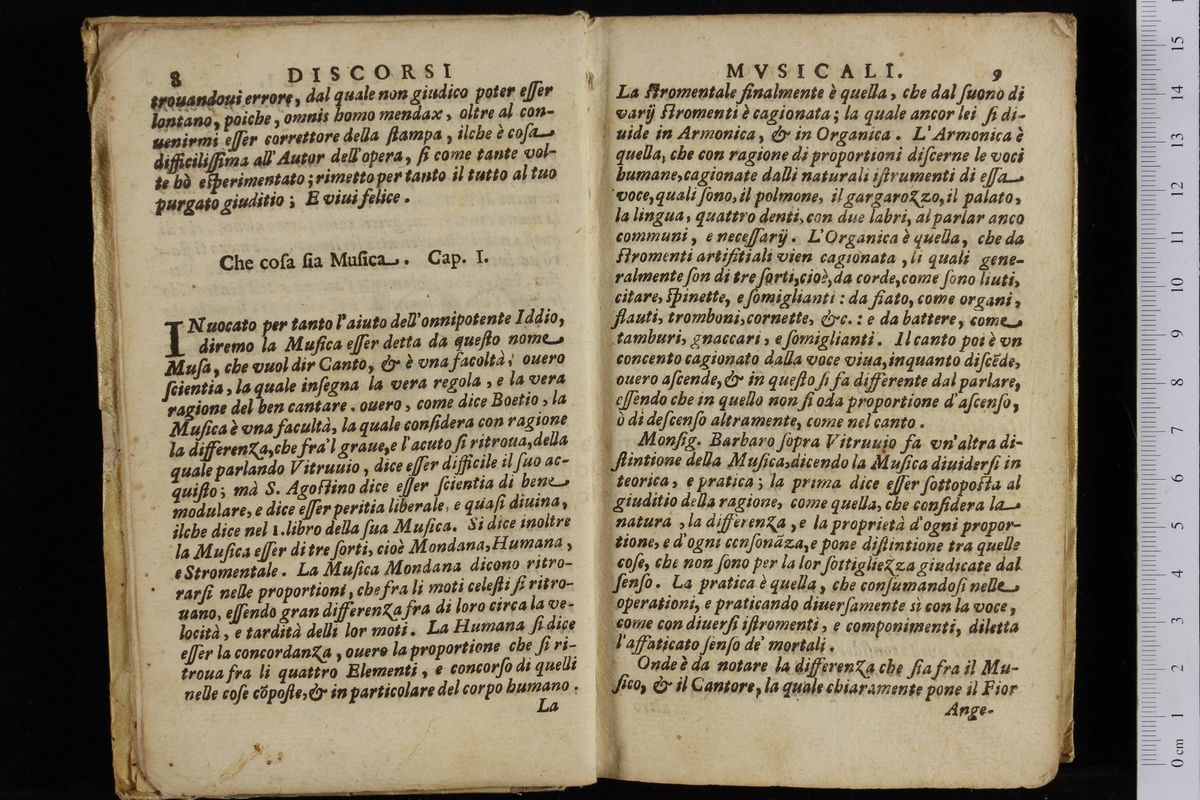 8 DISCORSI
trouandoui errore, dal quale non giudico poter eſſer
lontano, poiche, omnis homo mendax, oltre al con-
uenirmi eſſer correttore della ſtampa, ilche è coſa
difficiliſſima all'Autor dell'opera, ſi come tante vol-
te hò eſperimentato; rimetto per tanto il tutto al tuo
purgato giuditio; E viui felice.
Che coſa ſia Muſica. Cap. I.
INuocato per tanto l'aiuto dell'onnipotente Iddio,
diremo la Muſica eſſer detta da queſto nome
Muſa, che vuol dir Canto, & è vna facoltà, ouero
ſcientia, la quale inſegna la vera regola, e la vera
ragione del ben cantare. ouero, come dice Boetio, la
Muſica è vna facultà, la quale conſidera con ragione
la differenza, che fra'l graue, e l'acuto ſi ritroua, della
quale parlando Vitruuio, dice eſſer difficile il ſuo ac-
quiſto; mà S. Agoſtino dice eſſer ſcientia di bene
modulare, e dice eſſer peritia liberale, e quaſi diuina,
ilche dice nel 1. libro della ſua Muſica. Si dice inoltre
la Muſica eſſer di tre ſorti, cioè Mondana, Humana,
e Stromentale. La Muſica Mondana dicono ritro-
rarſi nelle proportioni, che fra li moti celeſti ſi ritro-
uano, eſſendo gran differenza fra di loro circa la ve-
locità, e tardità delli lor moti. La Humana ſi dice
eſſer la concordanza, ouero la proportione che ſi ri-
troua fra li quattro Elementi, e concorſo di quelli
nelle coſe cõpoſte, & in particolare del corpo humano.
La
MVSICALI. 9
La ſtromentale finalmente è quella, che dal ſuono di
varij ſtromenti è cagionata; la quale ancor lei ſi di-
uide in Armonica, & in Organica. L'Armonica è
quella, che con ragione di proportioni diſcerne le voci
humane, cagionate dalli naturali iſtrumenti di eſſa
voce, quali ſono, il polmone, il gargarozzo, il palato,
la lingua, quattro denti, con due labri, al parlar anco
communi, e neceſſarij. L'Organica è quella, che da
ſtromenti artifitiali vien cagionata, li quali gene-
ralmente ſon di tre ſorti, cioè, da corde, come ſono liuti,
citare, ſpinette, e ſomiglianti: da fiato, come organi,
flauti, tromboni, cornette, &c.: e da battere, come
tamburi, gnaccari, e ſomiglianti. Il canto poi è vn
concento cagionato dalla voce viua, inquanto diſcẽde,
ouero aſcende, & in queſto ſi fa differente dal parlare,
eſſendo che in quello non ſi oda proportione d'aſcenſo,
ò di deſcenſo altramente, come nel canto.
Monſig. Barbaro ſopra Vitruuio fa vn'altra di-
ſtintione della Muſica, dicendo la Muſica diuiderſi in
teorica, e pratica; la prima dice eſſer ſottopoſta al
giuditio della ragione, come quella, che conſidera la
natura, la differenza, e la proprietà d'ogni propor-
tione, e d'ogni conſonãza, e pone diſtintione tra quelle
coſe, che non ſono per la lor ſottigliezza giudicate dal
ſenſo. La pratica è quella, che conſumandoſi nelle
operationi, e praticando diuerſamente sì con la voce,
come con diuerſi iſtromenti, e componimenti, diletta
l'affaticato ſenſo de' mortali.
Onde è da notare la differenza che ſia fra il Mu-
ſico, & il Cantore, la quale chiaramente pone il Fior
Ange-
0 cm 1 2 3 4 5 6 7 8 9 10 11 12 13 14 15